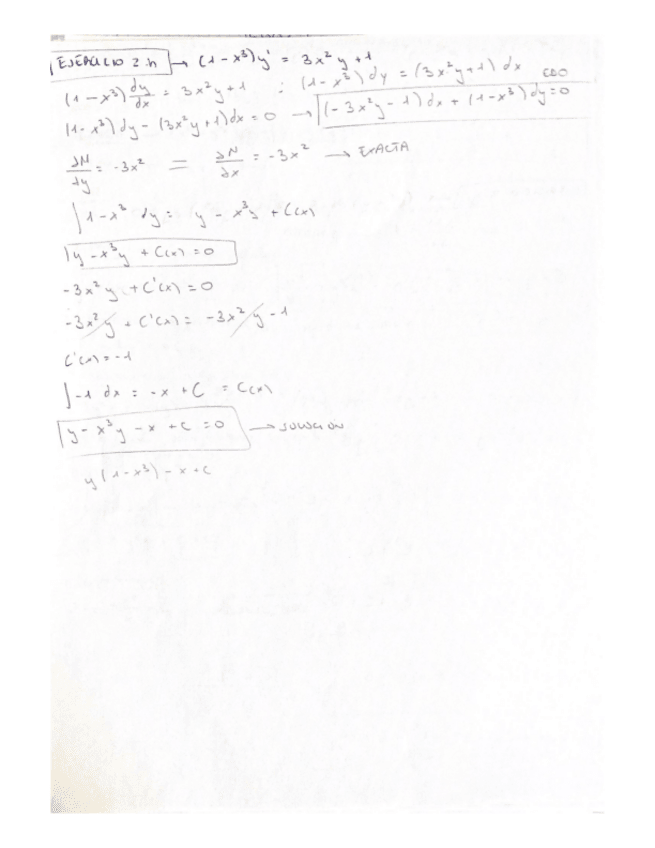 EJERCICIO 2.h → (1-x³)y' = 3x²y+1
(1-x³) dy/dx = 3x²y+1 ; (1-x³)dy = (3x²y+1)dx EDO
(1-x³)dy - (3x²y+1)dx = 0 → (-3x²y-1)dx + (1-x³)dy=0
∂M/∂y = -3x² = ∂N/∂x = -3x² → EXACTA
∫1-x³ dy = y - x³y + C(x)
y - x³y + C(x) = 0
-3x²y + C'(x) = 0
-3x²y + C'(x) = -3x²y - 1
C'(x) = -1
∫-1 dx = -x + C = C(x)
y - x³y - x + C = 0 → SOLUCION
y(1-x³) - x + C